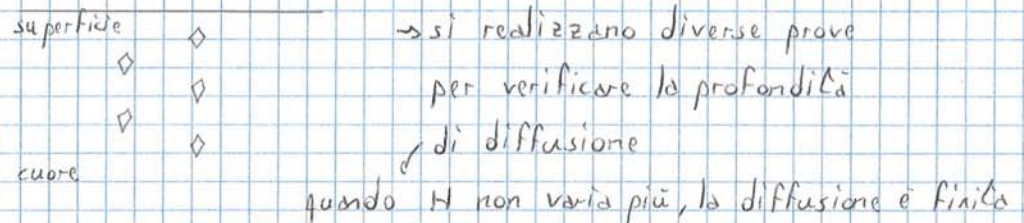 superficie
→ si realizzano diverse prove
per verificare la profondità
di diffusione
cuore
quando H non varia più, la diffusione è finita